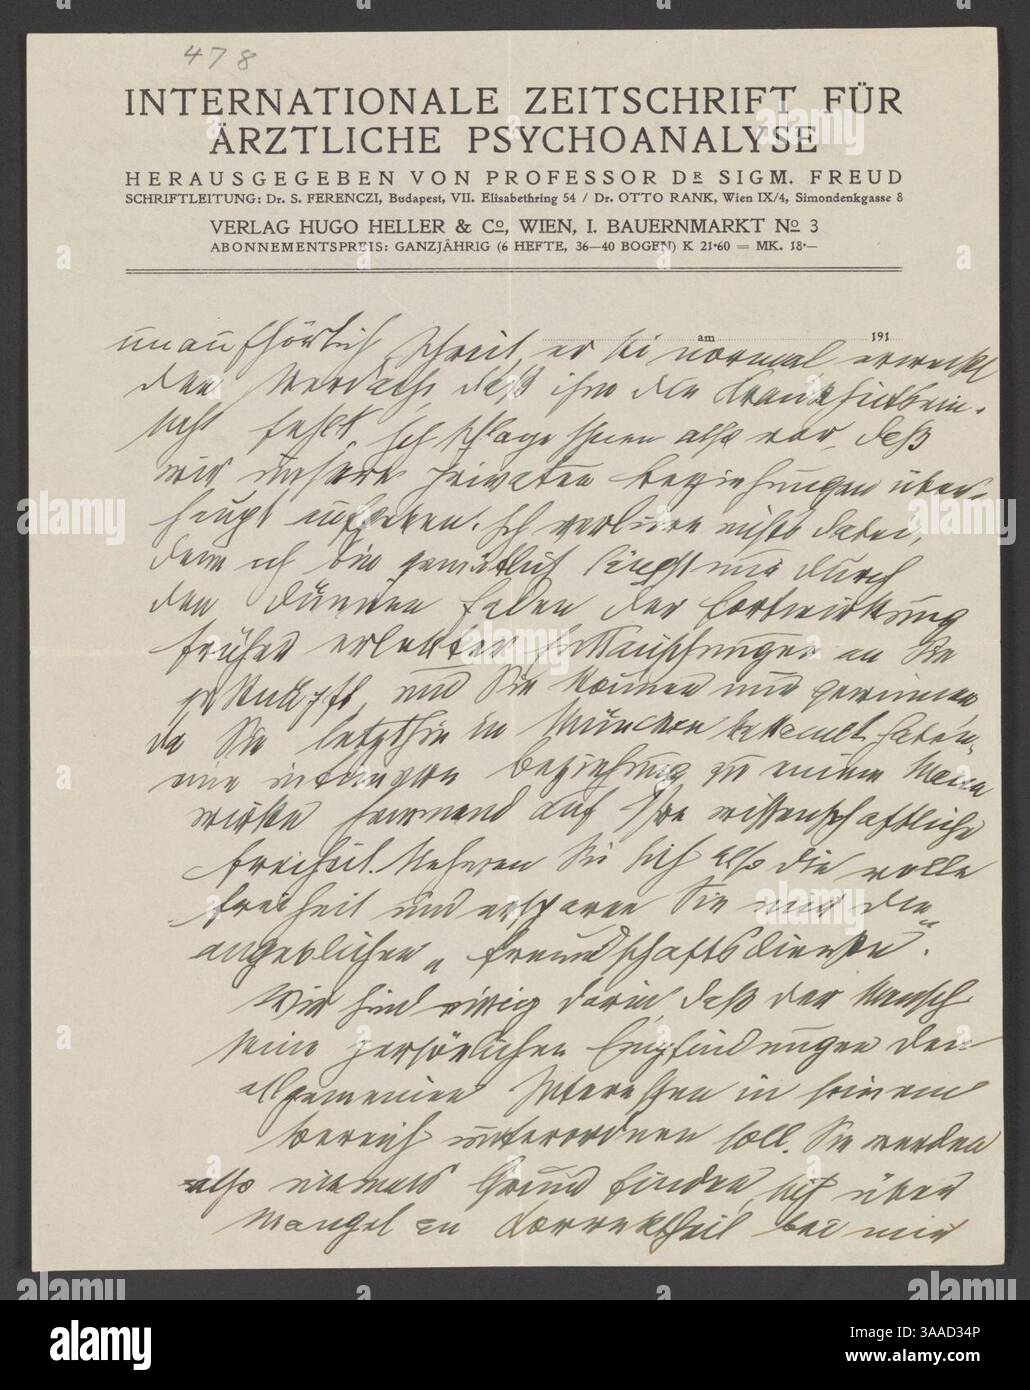 478
INTERNATIONALE ZEITSCHRIFT FÜR
ÄRZTLICHE PSYCHOANALYSE
HERAUSGEGEBEN VON PROFESSOR DR SIGM. FREUD
SCHRIFTLEITUNG: Dr. S. FERENCZI, Budapest, VII. Elisabethring 54 / Dr. OTTO RANK, Wien IX/4, Simondenkgasse 8
VERLAG HUGO HELLER & Co, WIEN, I. BAUERNMARKT No 3
ABONNEMENTSPREIS: GANZJÄHRIG (6 HEFTE, 36—40 BOGEN) K 21·60 = MK. 18·—
am 191
unaufhörlich schreit, er sei normal erweckt
den Verdacht, daß ihm die Krankheitsein-
sicht fehlt. Ich schlage Ihnen also vor, daß
wir unsere privaten Beziehungen über-
haupt aufgeben. Ich verliere nichts dabei,
denn ich bin gemütlich längst nur durch
den dünnen Faden der Fortwirkung
früher erlebter Enttäuschungen an Sie
geknüpft, und Sie können nur gewinnen
da Sie letzthin in München bekannt haben,
eine intimere Beziehung zu einem Mann
wirke hemmend auf Ihre wissenschaftliche
Freiheit. Nehmen Sie sich also die volle
Freiheit und ersparen Sie mir die
angeblichen „Freundschaftsdienste".
Wir sind einig darin, daß der Mensch
seine persönlichen Empfindungen den
allgemeinen Interessen in seinem
Bereich unterordnen soll. Sie werden
also niemals Grund finden, sich über
Mangel an Korrektheit bei mir
alamy
Image ID: 3AAD34P
www.alamy.com